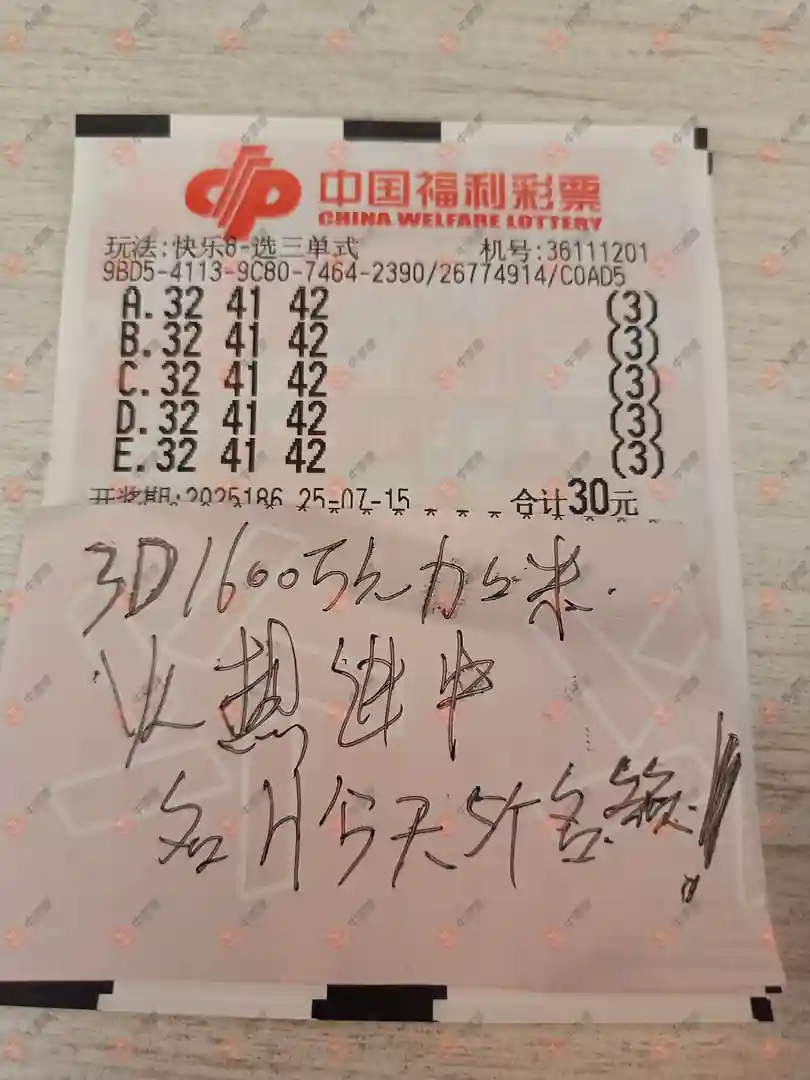 中国福利彩票
CHINA WELFARE LOTTERY
玩法:快乐8-选三单式 机号:36111201
9BD5-4113-9C80-7464-2390/26774914/C0AD5
A.32 41 42 (3)
B.32 41 42 (3)
C.32 41 42 (3)
D.32 41 42 (3)
E.32 41 42 (3)
开奖期:2025186 25-07-15 合计30元
3D1600万元加上米.
火热进中
名片今天5个名额!